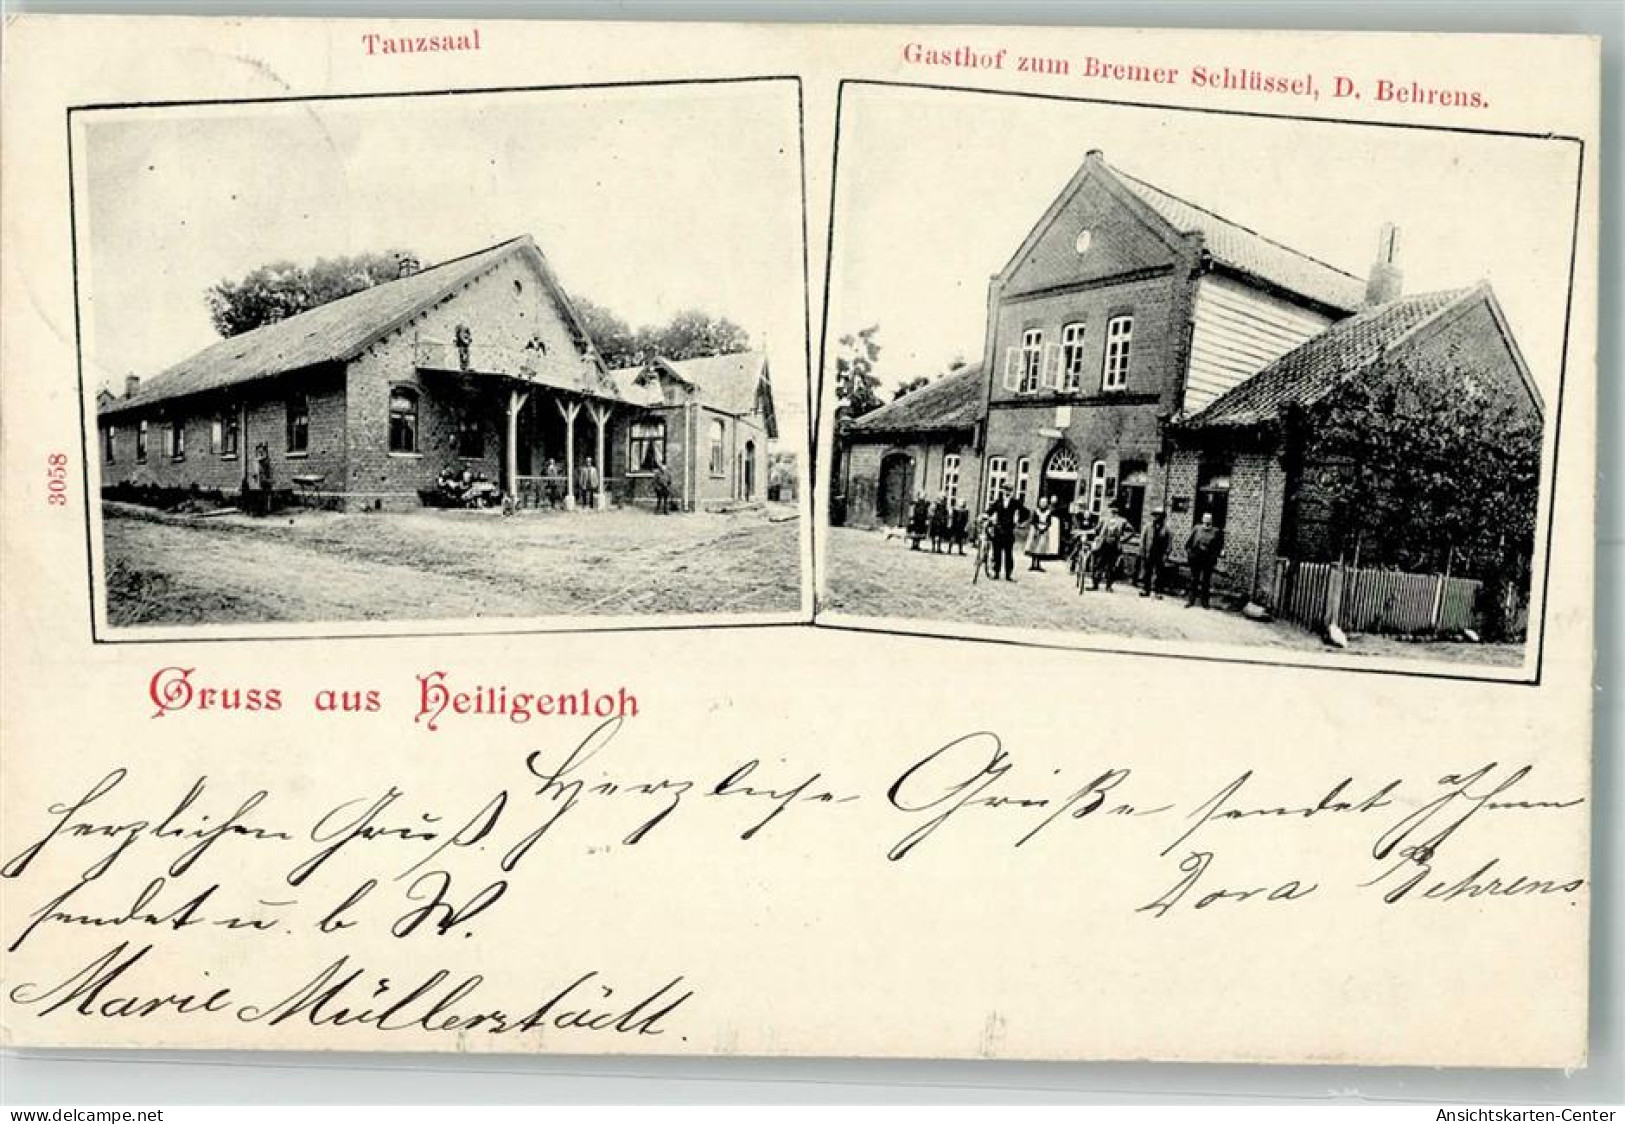 Tanzsaal
Gasthof zum Bremer Schlüssel, D. Behrens.
3058
Gruss aus Heiligenloh
Herzliche Grüße sendet Ihnen
Dora Behrens.
Herzlichen Gruß
sendet u. b W.
Marie Müllerstädt.
www.delcampe.net
Ansichtskarten-Center